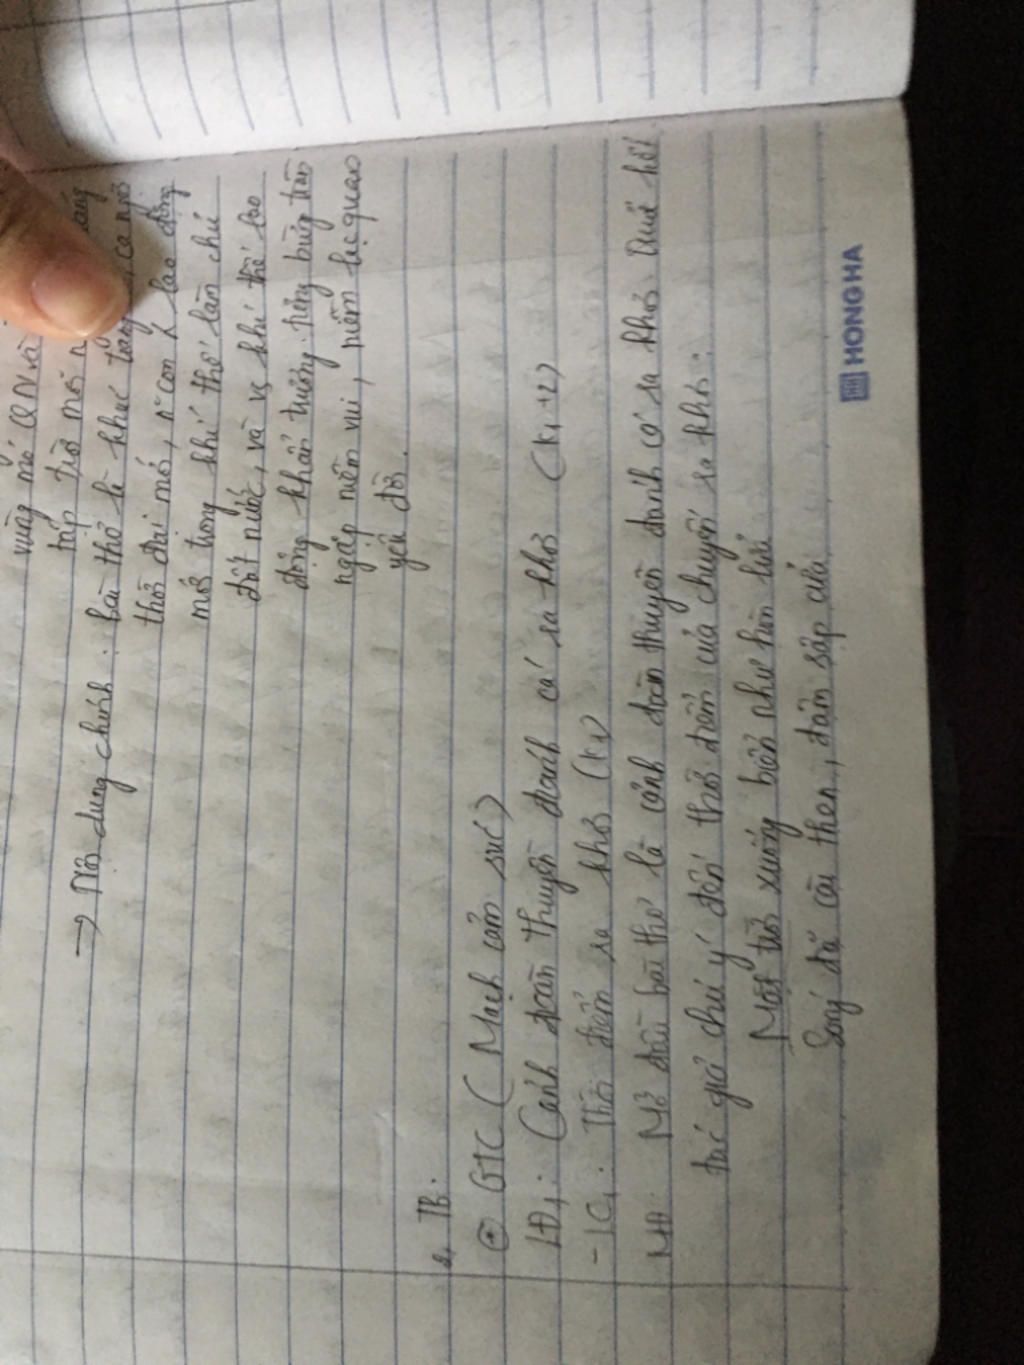 vùng mỏ QN và
tập trời mới
→ Nội dung chính: bài thơ là khúc tráng ca ngợi
thời đại mới, n~ con λ lao động
mới trong khí thế làm chủ
đất nước, và vs khí thế lao
động khẩn trương, tưng bừng tràn
ngập niềm vui, niềm lạc quan
yêu đời.
2, TB.
GTC (Mạch cảm xúc)
LĐ1: Cảnh đoàn thuyền đánh cá ra khơi (K1+2)
- LC1: Thời điểm ra khơi (K1)
MĐ: Mở đầu bài thơ là cảnh đoàn thuyền đánh cá ra khơi
tác giả chú ý đến thời điểm của chuyến ra khơi:
Mặt trời xuống biển như hòn lửa
Sóng đã cài then, đêm sập cửa
HONG HA